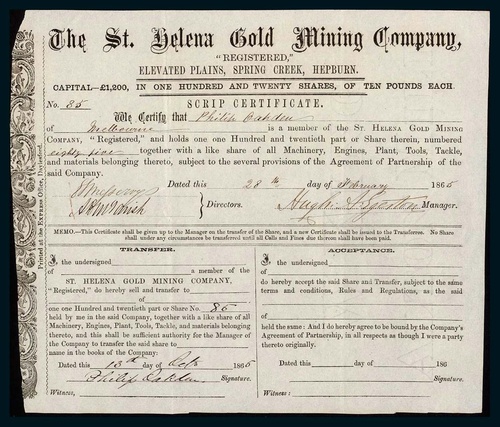 The St. Helena Gold Mining Company,
"REGISTERED,"
ELEVATED PLAINS, SPRING CREEK, HEPBURN.
CAPITAL—£1,200, IN ONE HUNDRED AND TWENTY SHARES, OF TEN POUNDS EACH.
No. 85 SCRIP CERTIFICATE.
We Certify that Philip Oakden
of Melbourne is a member of the ST. HELENA GOLD MINING
COMPANY, "Registered," and holds one One hundred and twentieth part or Share therein, numbered
eighty five together with a like share of all Machinery, Engines, Plant, Tools, Tackle,
and materials belonging thereto, subject to the several provisions of the Agreement of Partnership of the
said Company.
Dated this 28th day of February 1865
Directors. Hugh Manager.
MEMO.—This Certificate shall be given up to the Manager on the transfer of the Share, and a new Certificate shall be issued to the Transferree. No Share
shall under any circumstances be transferred until all Calls and Fines due thereon shall have been paid.
TRANSFER.
I, the undersigned
of a member of the
ST. HELENA GOLD MINING COMPANY,
"Registered," do hereby sell and transfer to
of
one one hundred and twentieth part or Share No. 85
held by me in the said Company, together with a like share of all
Machinery, Engines, Plant, Tools, Tackle, and materials belonging
thereto, and this shall be sufficient authority for the Manager of
the Company to transfer the said share to
name in the books of the Company.
Dated this 13th day of Oct 1865
Philip Oakden Signature.
Witness,
ACCEPTANCE.
I, the undersigned
of
do hereby accept the said Share and Transfer, subject to the same
terms and conditions, Rules and Regulations, as the said
of
held the same: And I do hereby agree to be bound by the Company's
Agreement of Partnership, in all respects as though I were a party
thereto originally.
Dated this day of 186
Signature.
Witness:
Printed at the Express Office, Daylesford.